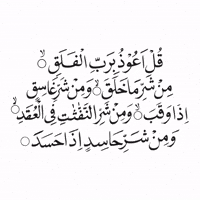 قُلْ اَعُوْذُ بِرَبِّ الْفَلَقِۙ
مِنْ شَرِّ مَا خَلَقَۙ وَمِنْ شَرِّ غَاسِقٍ
اِذَا وَقَبَۙ وَمِنْ شَرِّ النَّفّٰثٰتِ فِى الْعُقَدِۙ
وَمِنْ شَرِّ حَاسِدٍ اِذَا حَسَدَ